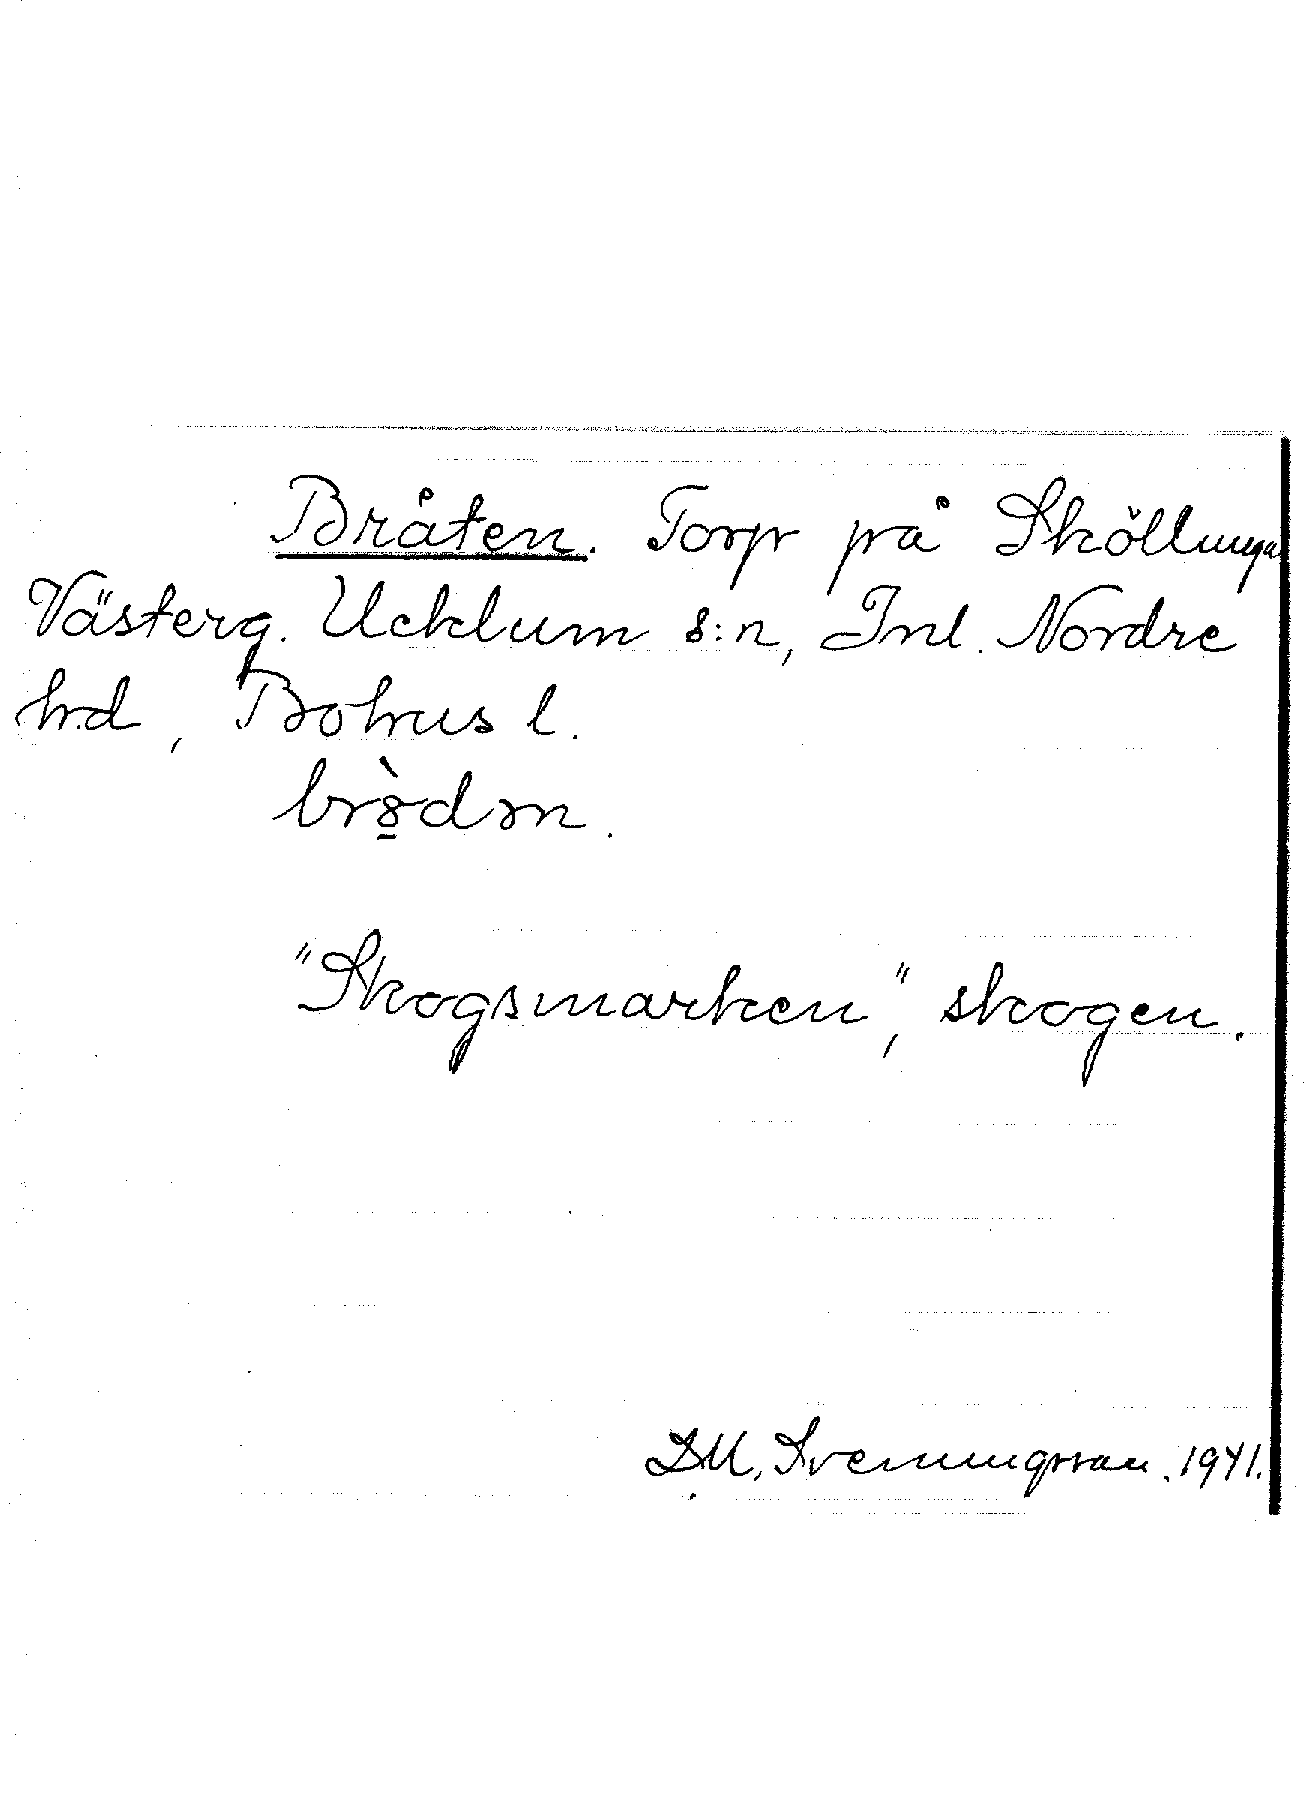 Bråten. Torp på Sköllunga
Västerg. Ucklum s:n, Inl. Nordre
hrd, Bohus l.
brò̠dən.
"Skogsmarken", skogen.
D.M. Sveningsson. 1941.